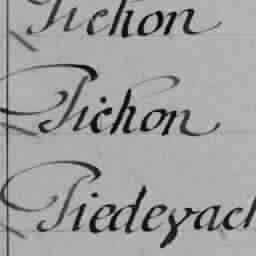 Pichon
Pichon
Piedeyach